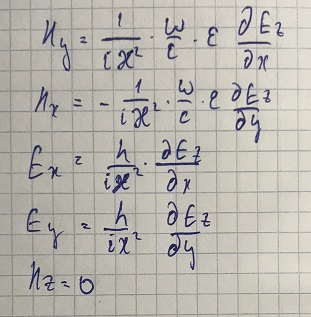 Hy = 1/(iæ²) · ω/c · ε ∂Ez/∂x
Hx = - 1/(iæ²) · ω/c · ε ∂Ez/∂y
Ex = h/(iæ²) · ∂Ez/∂x
Ey = h/(iæ²) ∂Ez/∂y
Hz = 0